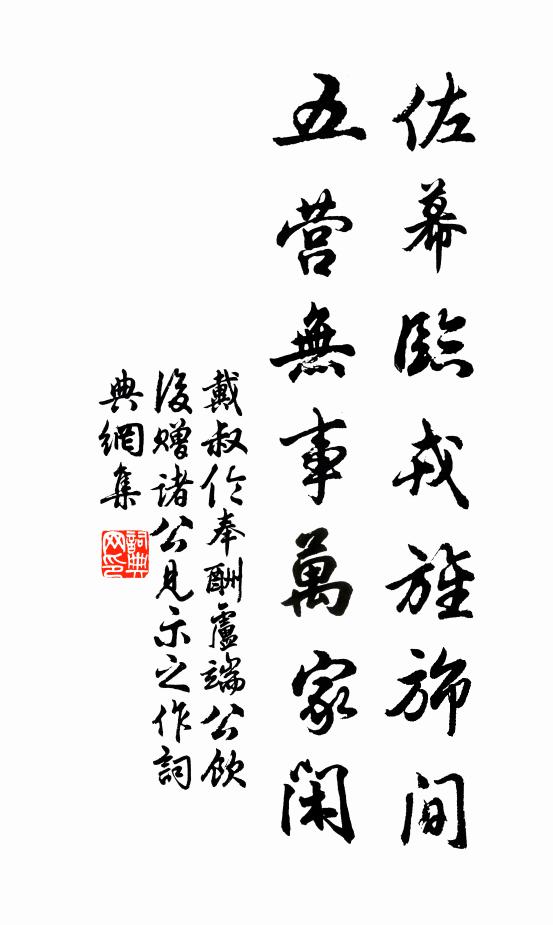 佐幕臨戎旌旆間
五营無事萬家閑
戴叔倫奉酬盧端公飲
後贈諸公見示之作詞
典網集
詞典
网印